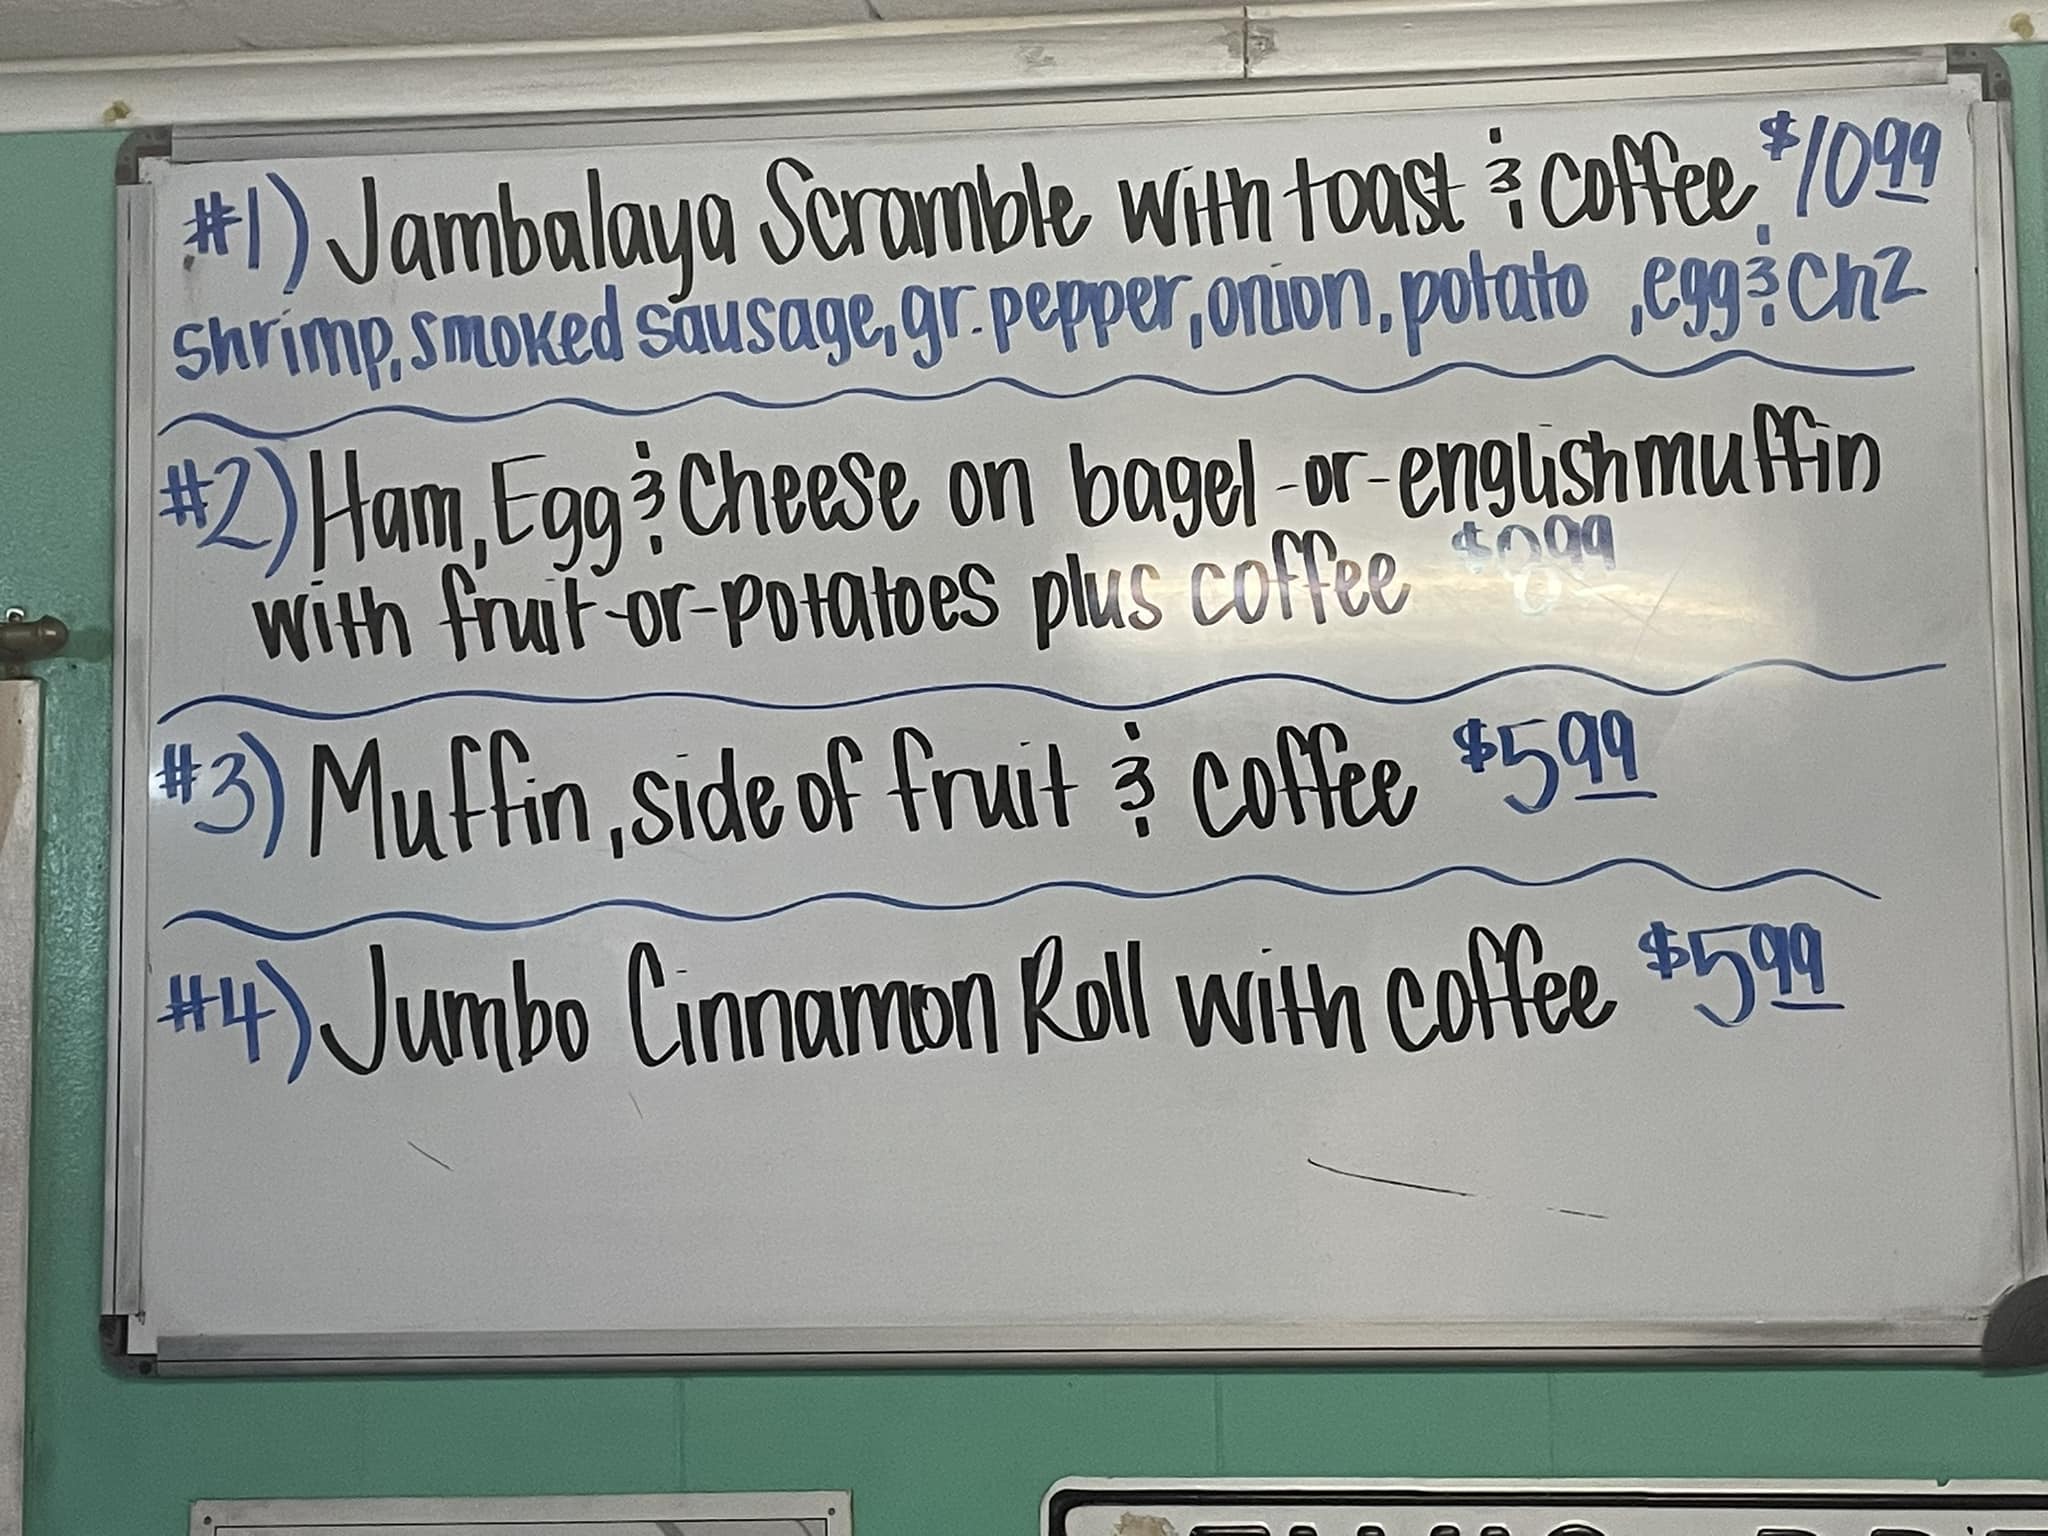 #1) Jambalaya Scramble with toast & coffee $10.99
shrimp, smoked sausage, gr. pepper, onion, potato, egg & Chz
#2) Ham, Egg & Cheese on bagel -or- english muffin
with fruit -or- potatoes plus coffee
#3) Muffin, side of fruit & coffee $5.99
#4) Jumbo Cinnamon Roll with coffee $5.99